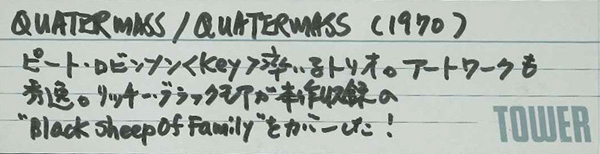 QUATERMASS / QUATERMASS (1970)
ピート・ロビンソン<Key>率いるトリオ。アートワークも
秀逸。リッチー・ブラックモアが本作収録の
"Black Sheep Of Family"をカバーした!
TOWER